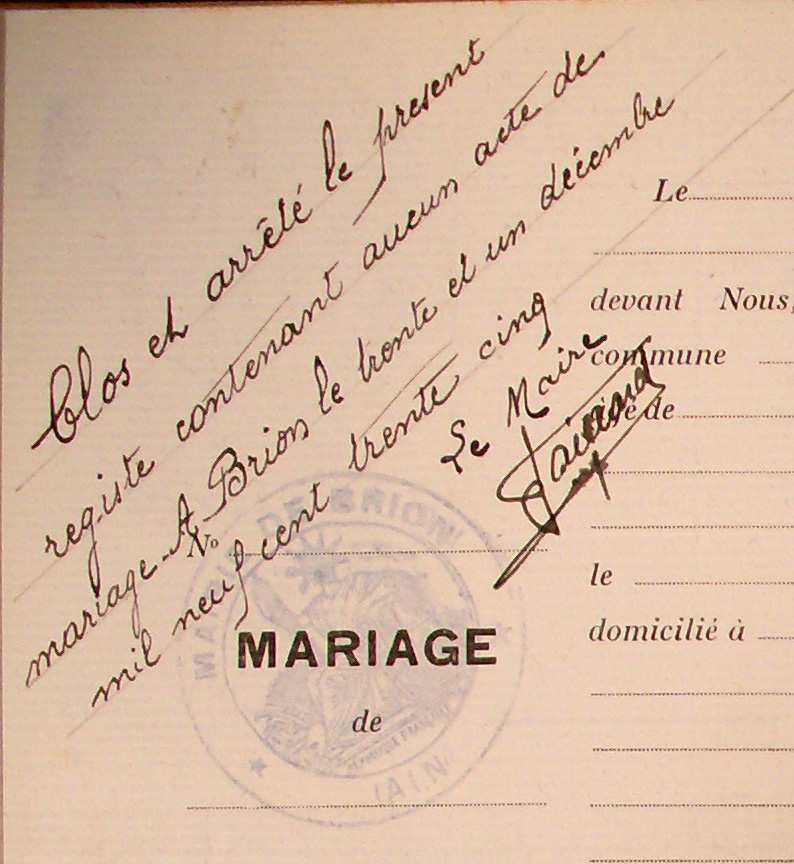 Clos et arrêté le present
registe contenant aucun acte de
mariage. A Brion le trente et un décembre
mil neuf cent trente cinq
Le Maire
No
MAIRIE DE BRION
RÉPUBLIQUE FRANÇAISE
(AIN)
MARIAGE
de
Le
devant Nous,
commune
de
le
domicilié à